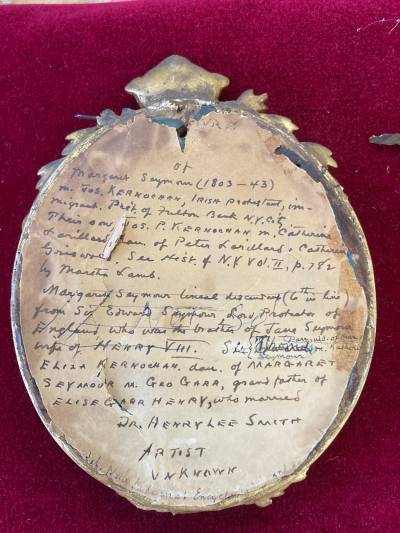 of
Margaret Seymour (1803-43)
m. Jos. KERNOCHAN, IRISH Protestant, im-
migrant. Prest. of Fulton Bank N.Y. City
Their son, Jos. P. KERNOCHAN m. Catherine
Lorillard dau. of Peter Lorillard & Catherine
Griswold. See Hist. of N.Y. Vol. II, p. 782
by Martha Lamb.
Margaret Seymour lineal descendant (6th in line)
from Sir Edward Seymour, Lord Protector of
England who was brother of Jane Seymour
wife of HENRY VIII. Sir
Seymour m.
ELIZA KERNOCHAN, dau. of MARGARET
SEYMOUR m. GEO GARR, grand father of
ELISE GARR HENRY, who married
DR. HENRY LEE SMITH
ARTIST
UNKNOWN